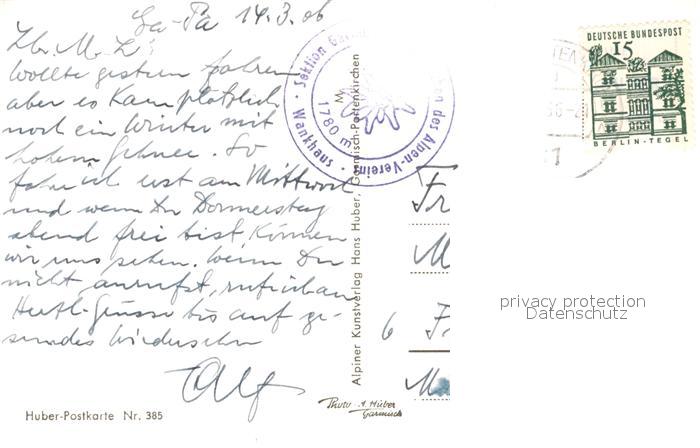 Ga-Pa 14.3.66
Lb. M. L!
Wollte gestern fahren
aber es kam plötzlich
noch ein Winter mit
hohem Schnee. So
fahre ich erst am Mittwoch
und wenn Du Donnerstag
abend frei bist, können
wir uns sehen. Wenn Du
nicht anrufst, rufe ich an
Herzl. Grüsse bis auf ge-
sundes Wiedersehn
Alf
Huber-Postkarte Nr. 385
Alpiner Kunstverlag Hans Huber, Garmisch-Partenkirchen
Photo A. Huber
Garmisch
Sektion Ga
en des Alpen-Vereins
Wankhaus
1780 m
DEUTSCHE BUNDESPOST
15
BERLIN-TEGEL
Fr
M
6 F
privacy protection
Datenschutz